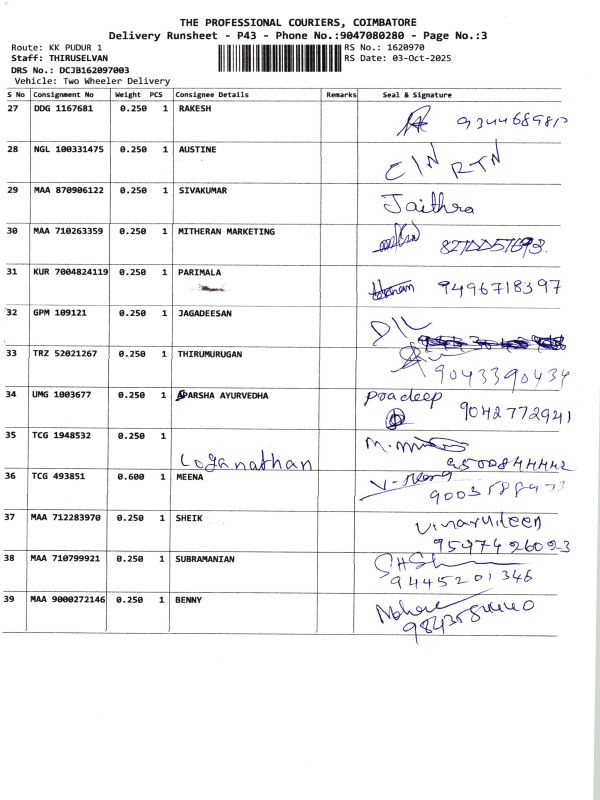 THE PROFESSIONAL COURIERS, COIMBATORE
Delivery Runsheet - P43 - Phone No.:9047080280 - Page No.:3
Route: KK PUDUR 1 RS No.: 1620970
Staff: THIRUSELVAN RS Date: 03-Oct-2025
DRS No.: DCJB162097003
Vehicle: Two Wheeler Delivery
S No Consignment No Weight PCS Consignee Details Remarks Seal & Signature
27 DDG 1167681 0.250 1 RAKESH
28 NGL 100331475 0.250 1 AUSTINE
RTN
29 MAA 870906122 0.250 1 SIVAKUMAR
Jaithra
30 MAA 710263359 0.250 1 MITHERAN MARKETING
31 KUR 7004824119 0.250 1 PARIMALA
9496718397
32 GPM 109121 0.250 1 JAGADEESAN
D/L
33 TRZ 52021267 0.250 1 THIRUMURUGAN
9043390434
34 UMG 1003677 0.250 1 PARSHA AYURVEDHA
Pradeep
9042772941
35 TCG 1948532 0.250 1
Loganathan
36 TCG 493851 0.600 1 MEENA
37 MAA 712283970 0.250 1 SHEIK
9597426023
38 MAA 710799921 0.250 1 SUBRAMANIAN
9445201346
39 MAA 9000272146 0.250 1 BENNY